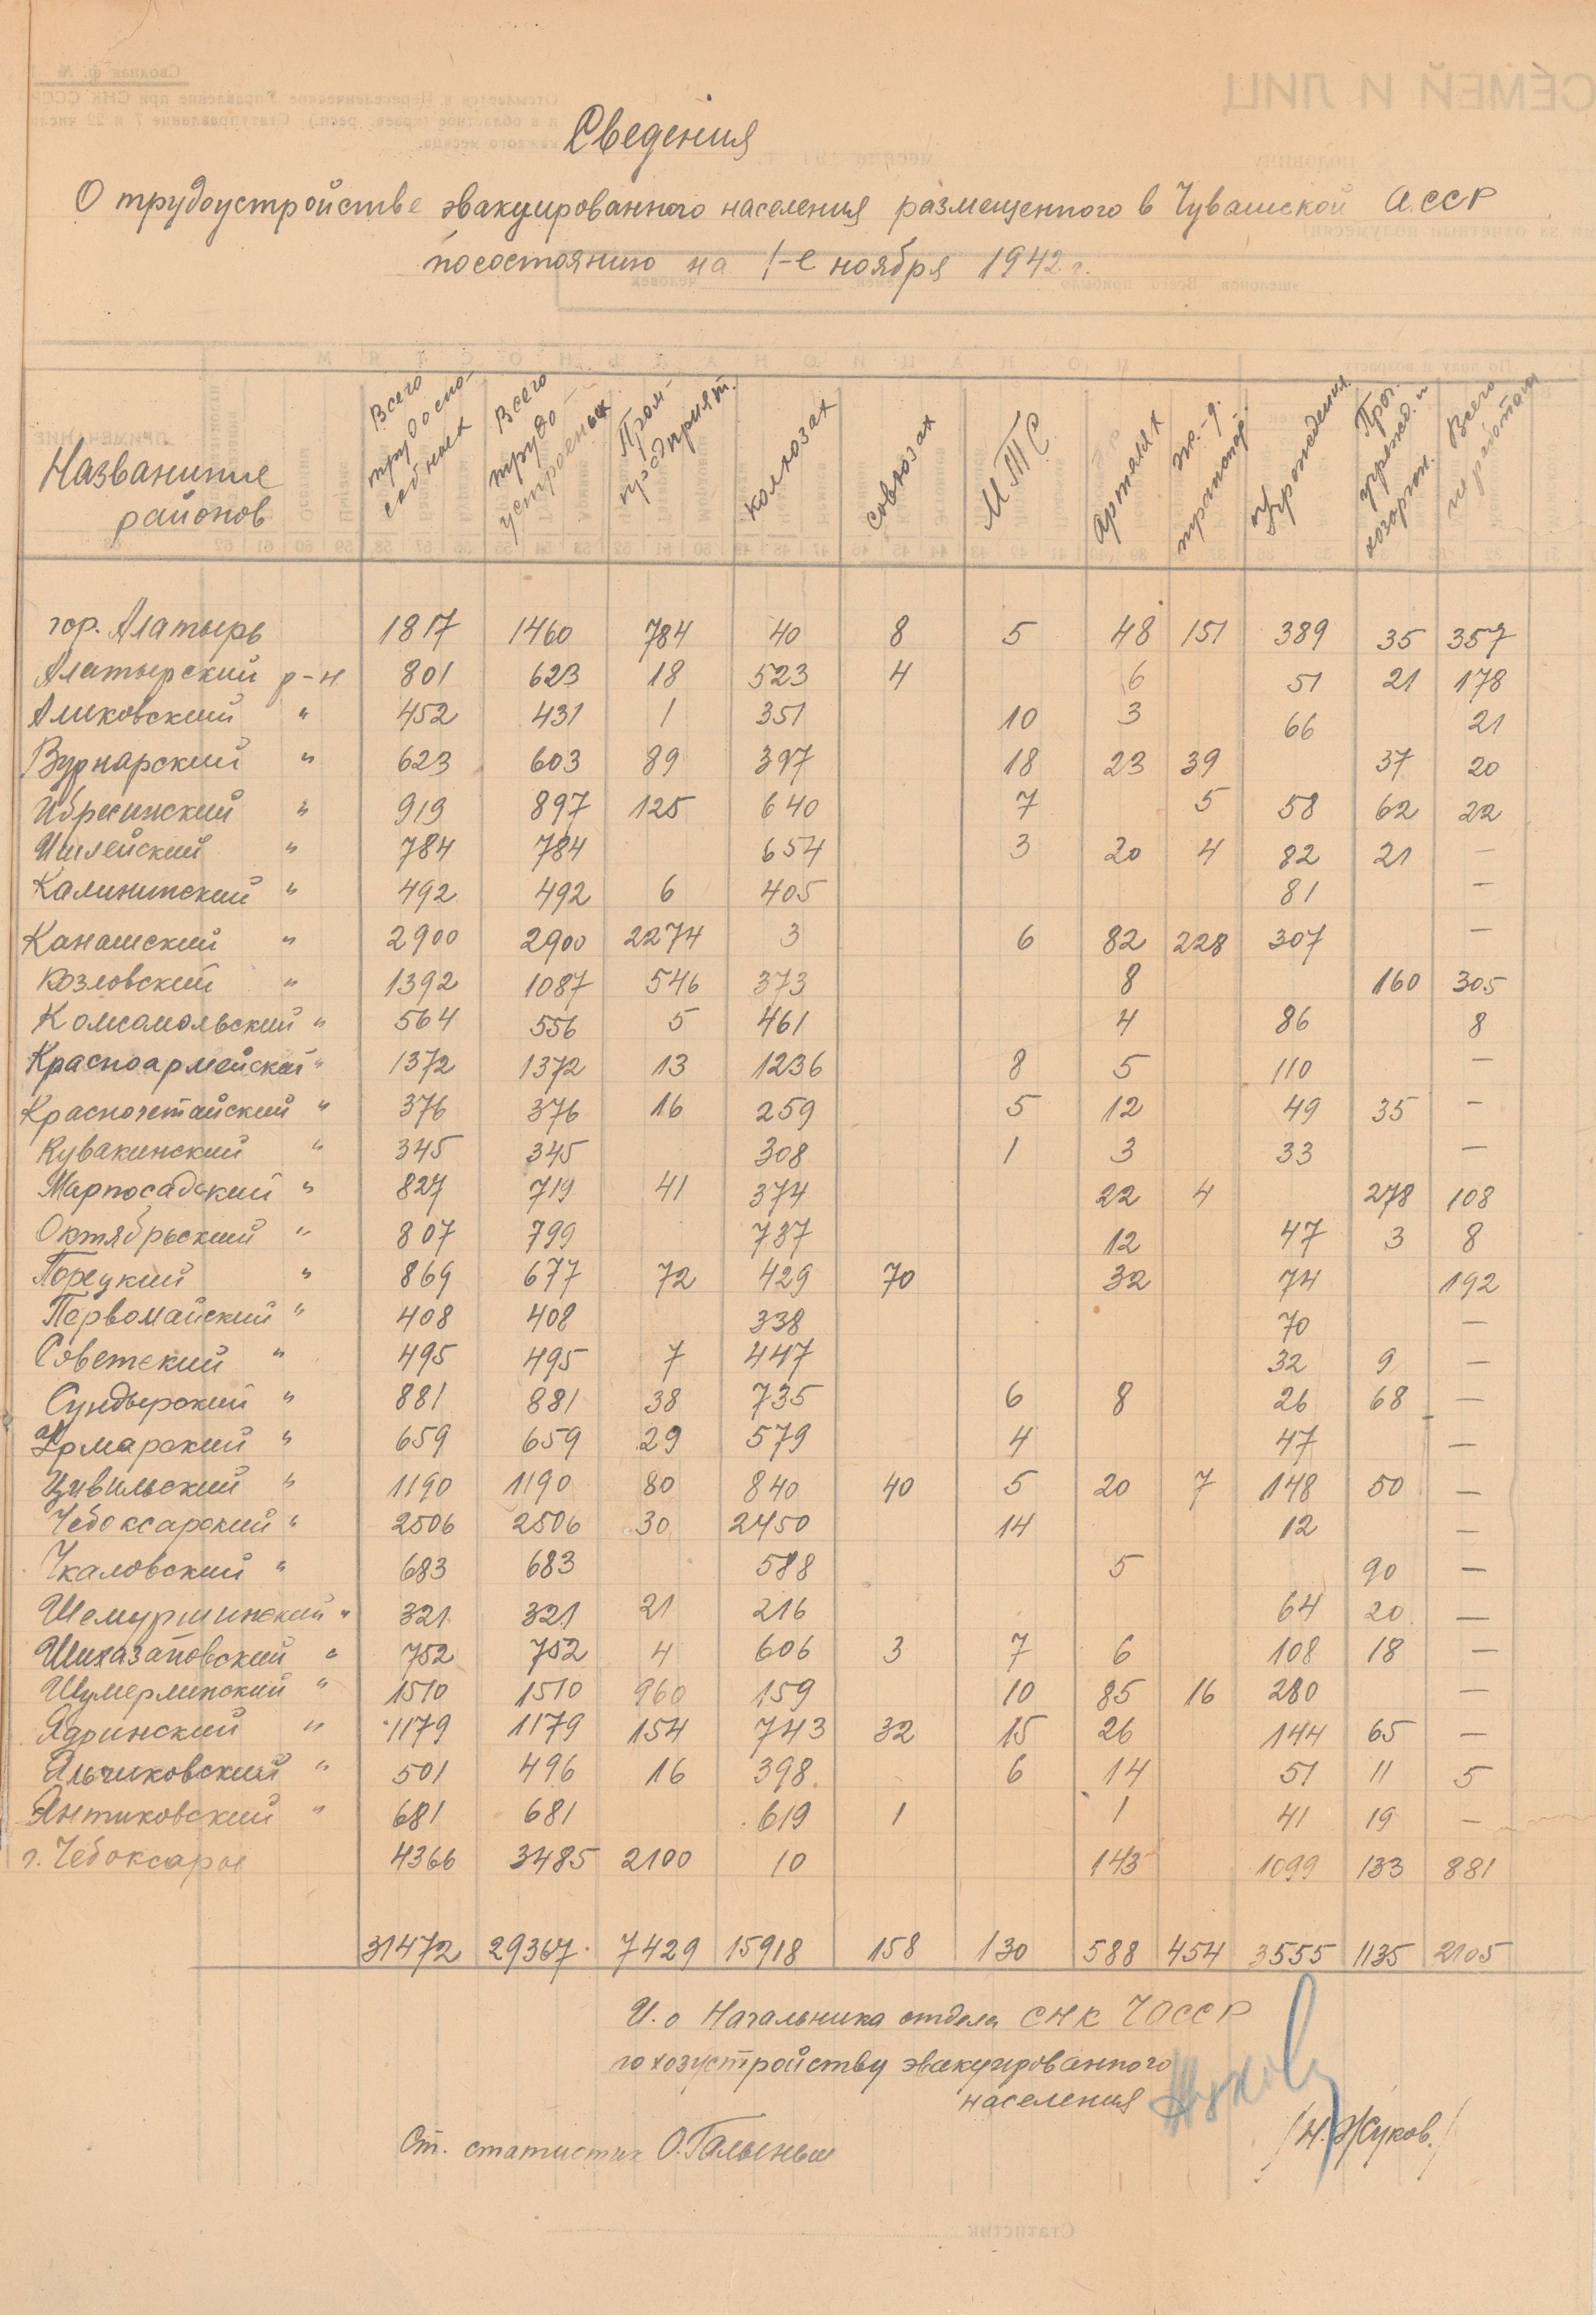 Сведения
О трудоустройстве эвакуированного населения размещенного в Чувашской АССР
посостоянию на 1-е ноября 1942 г.
Названиие районов | Всего трудоспособных | Всего трудоустроеных | Пром-предприят. | колхозах | совхозах | МТС | артелях | ж.-д. транспор. | Учреждения | Проч. учрежд. и хозорган. | Всего неработают
гор. Алатырь 1817 1460 784 40 8 5 48 151 389 35 357
Алатырский р-н 801 623 18 523 4 6 51 21 178
Аликовский " 452 431 1 351 10 3 66 21
Вурнарский " 623 603 89 397 18 23 39 37 20
Ибресинский " 919 897 125 640 7 5 58 62 22
Ишлейский " 784 784 654 3 20 4 82 21 —
Калининский " 492 492 6 405 81 —
Канашский " 2900 2900 2274 3 6 82 228 307 —
Козловский " 1392 1087 546 373 8 160 305
Комсомольский " 564 556 5 461 4 86 8
Красноармейский " 1372 1372 13 1236 8 5 110 —
Красночетайский " 376 376 16 259 5 12 49 35 —
Кувакинский " 345 345 308 1 3 33 —
Марпосадский " 827 719 41 374 22 4 278 108
Октябрьский " 807 799 737 12 47 3 8
Порецкий " 869 677 72 429 70 32 74 192
Первомайский " 408 408 338 70 —
Советский " 495 495 7 447 32 9 —
Сундырский " 881 881 38 735 6 8 26 68 —
Урмарский " 659 659 29 579 4 47 —
Цивильский " 1190 1190 80 840 40 5 20 7 148 50 —
Чебоксарский " 2506 2506 30 2450 14 12 —
Чкаловский " 683 683 588 5 90 —
Шемуршинский " 321 321 21 216 64 20 —
Шихазановский " 752 752 4 606 3 7 6 108 18 —
Шумерлинский " 1510 1510 960 159 10 85 16 280 —
Ядринский " 1179 1179 154 743 32 15 26 144 65 —
Яльчиковский " 501 496 16 398 6 14 51 11 5
Янтиковский " 681 681 619 1 1 41 19 —
г. Чебоксары 4366 3485 2100 10 143 1099 133 881
31472 29367 7429 15918 158 130 588 454 3555 1135 2105
И.о Начальника отдела СНК ЧАССР
по хозустройству эвакуированного
населения Жуков /Н. Жуков./
Ст. статистик